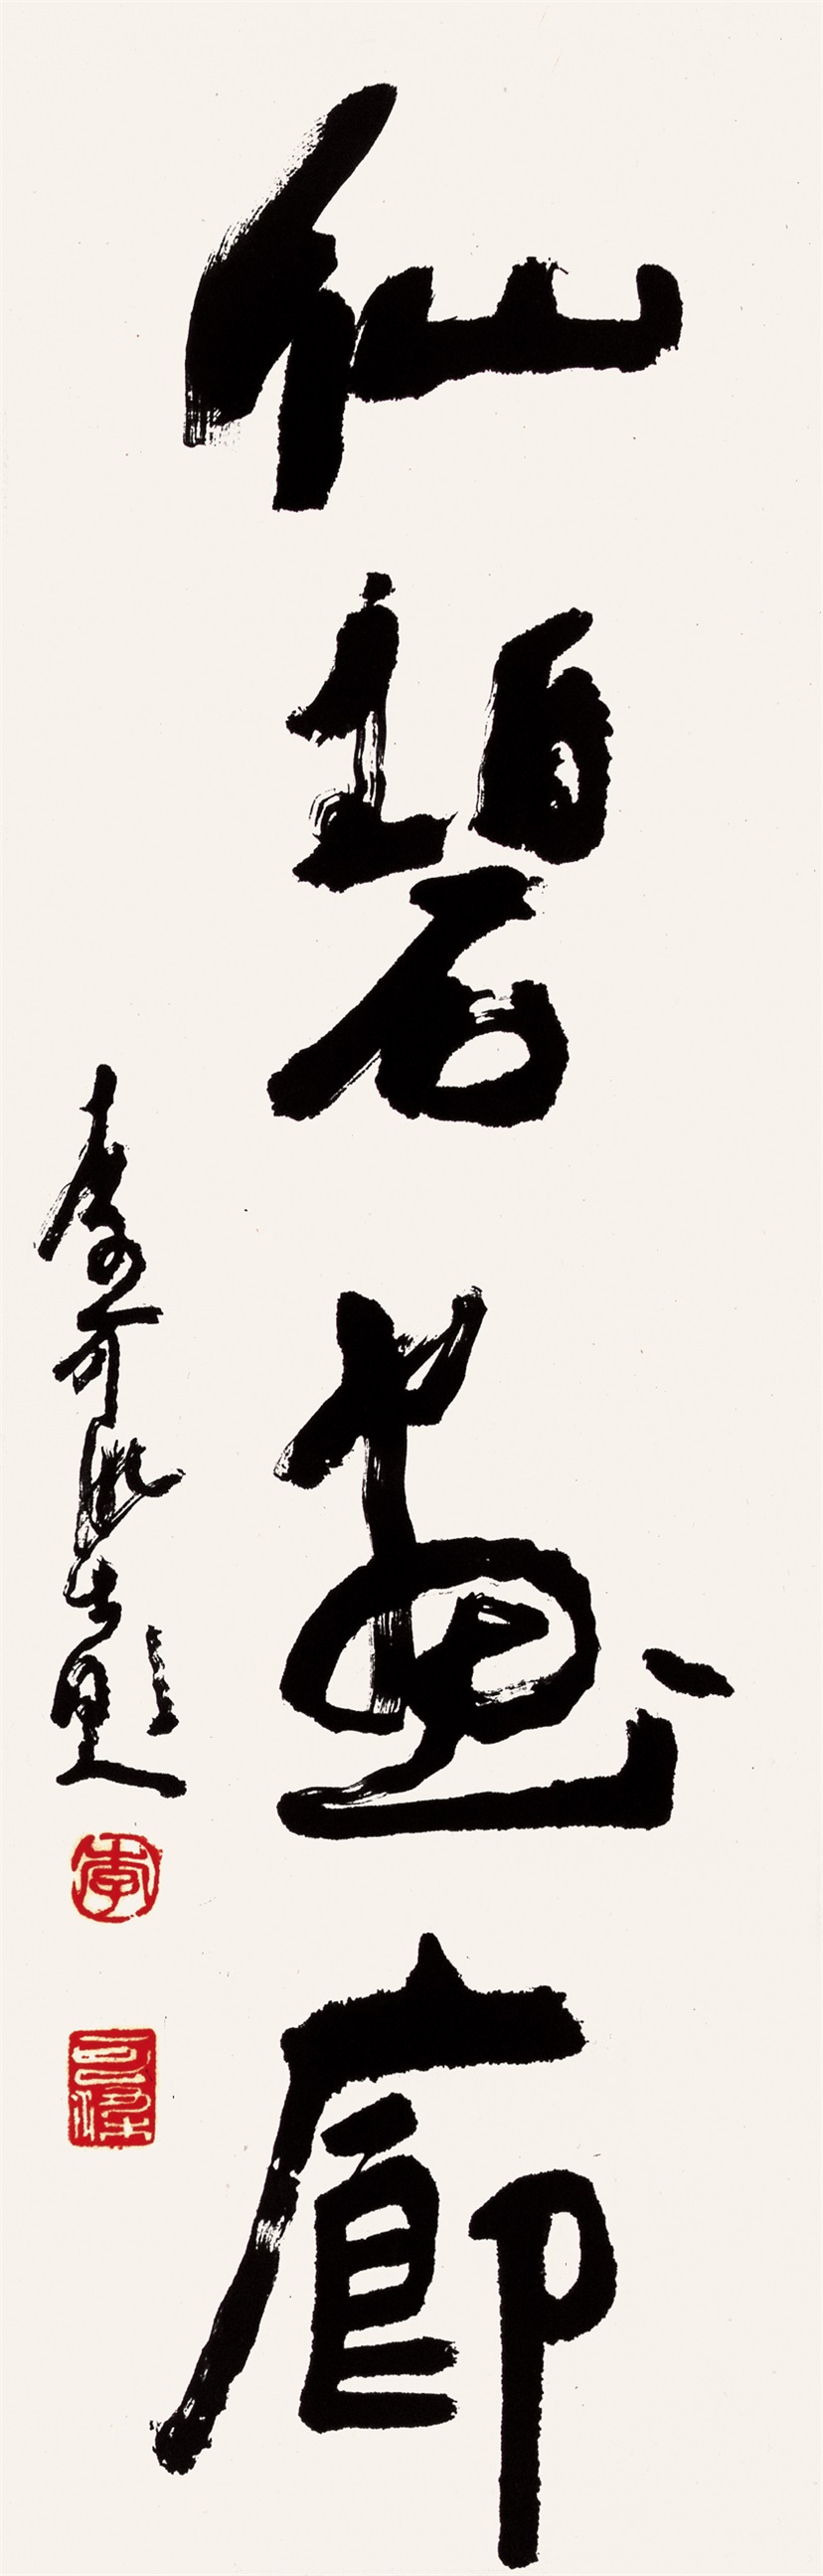 仙碧畫廊
李可染題
李
可染